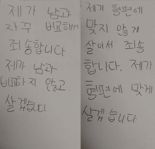 제가 남과
자꾸 비교해서
죄송합니다
제가 남과
비교하지 않고
살겠습니다
제가 형편에
맞지 않게
살아서 죄송
합니다. 제가
형편에 맞게
살겠습니다